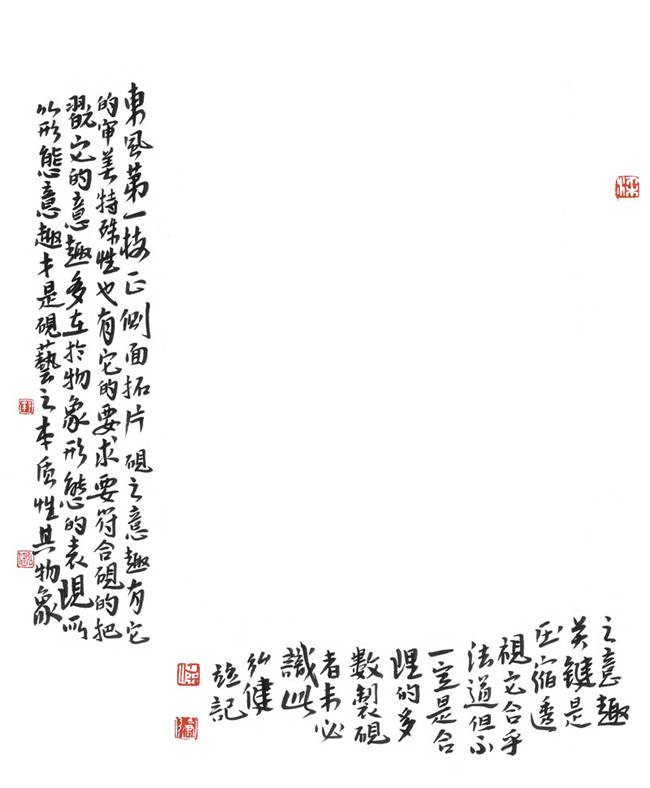 東風第一枝正側面拓片硯之意趣有它
的审美特殊性也有它的要求要符合硯的把
翫它的意趣多在於物象形態的表現所
以形態意趣才是硯藝之本质性其物象
之意趣
关键是
压缩透
視它合乎
法道但不
一定是合
理的多
數製硯
者未必
識此
健
記